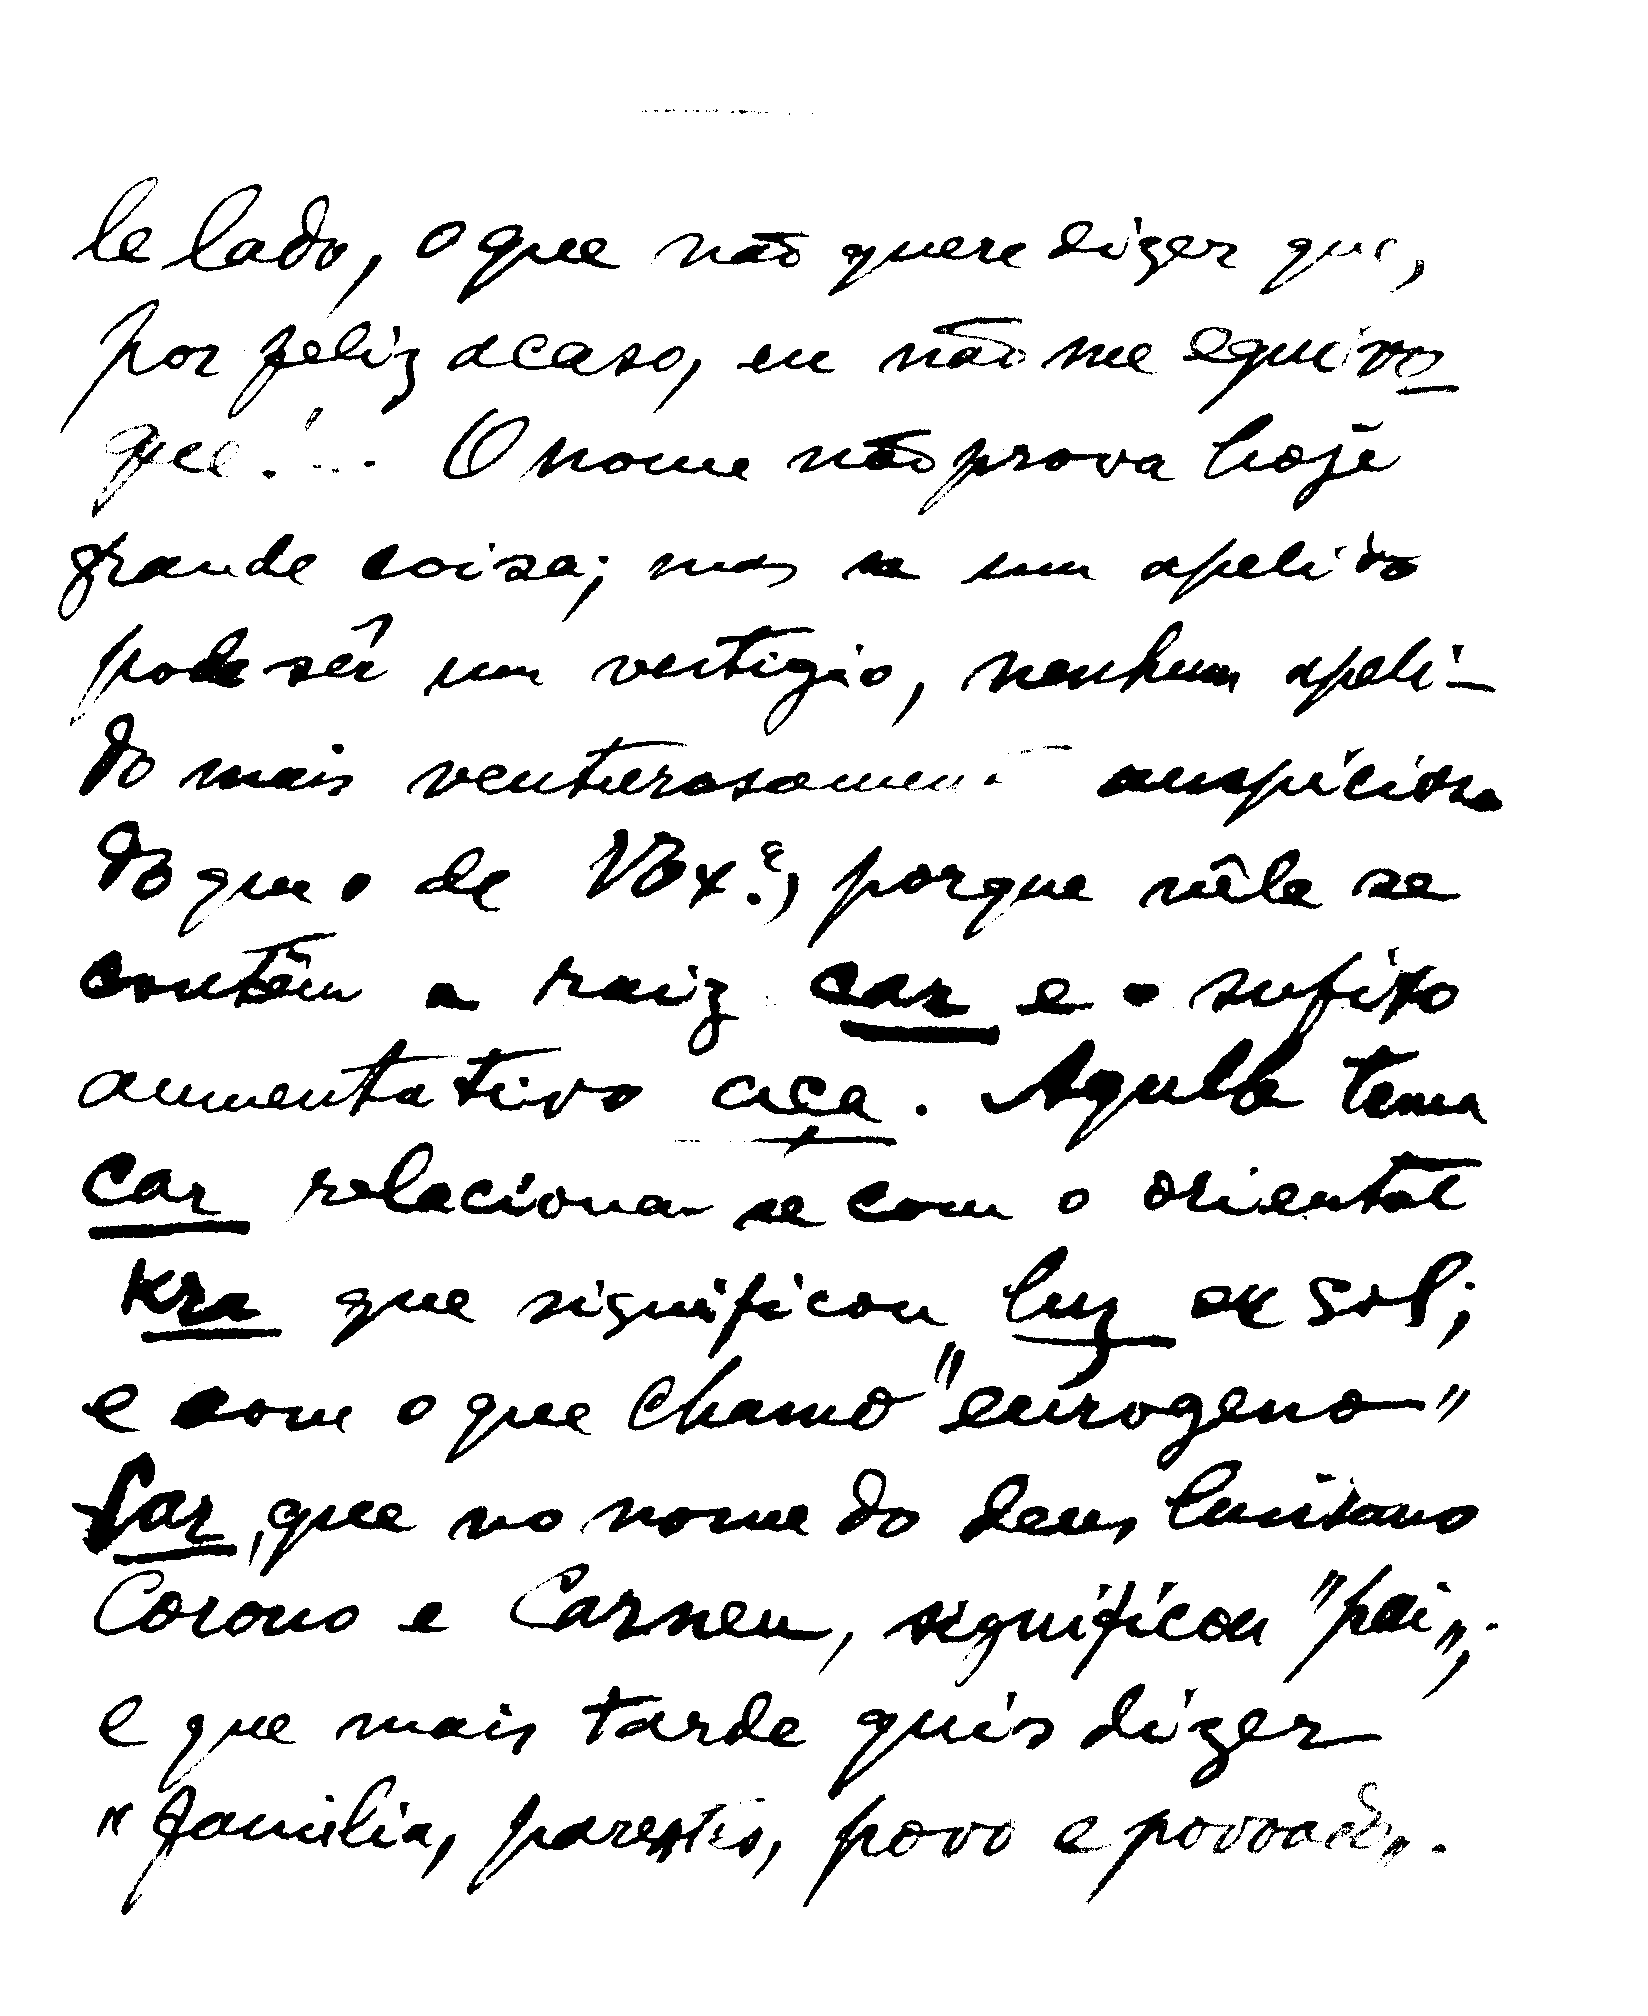 le lado, o que não quere dizer que,
por feliz acaso, eu não me equivo-
que!... O nome não prova hoje
grande coisa; mas se um apelido
pode sêr um vestigio, nenhum apeli-
do mais venturosamente auspicioso
do que o de V. Ex.ª, porque nêle se
contêm a raiz car e o sufixo
aumentativo aça. Aquele tema
car relaciona-se com o oriental
Kra que significou luz ou sol;
e com o que chamo "eurogeno"
Car, que no nome do deus lusitano
Corono e Carneu, significou "pai",
e que mais tarde quis dizer
"familia, parentes, povo e povoação".